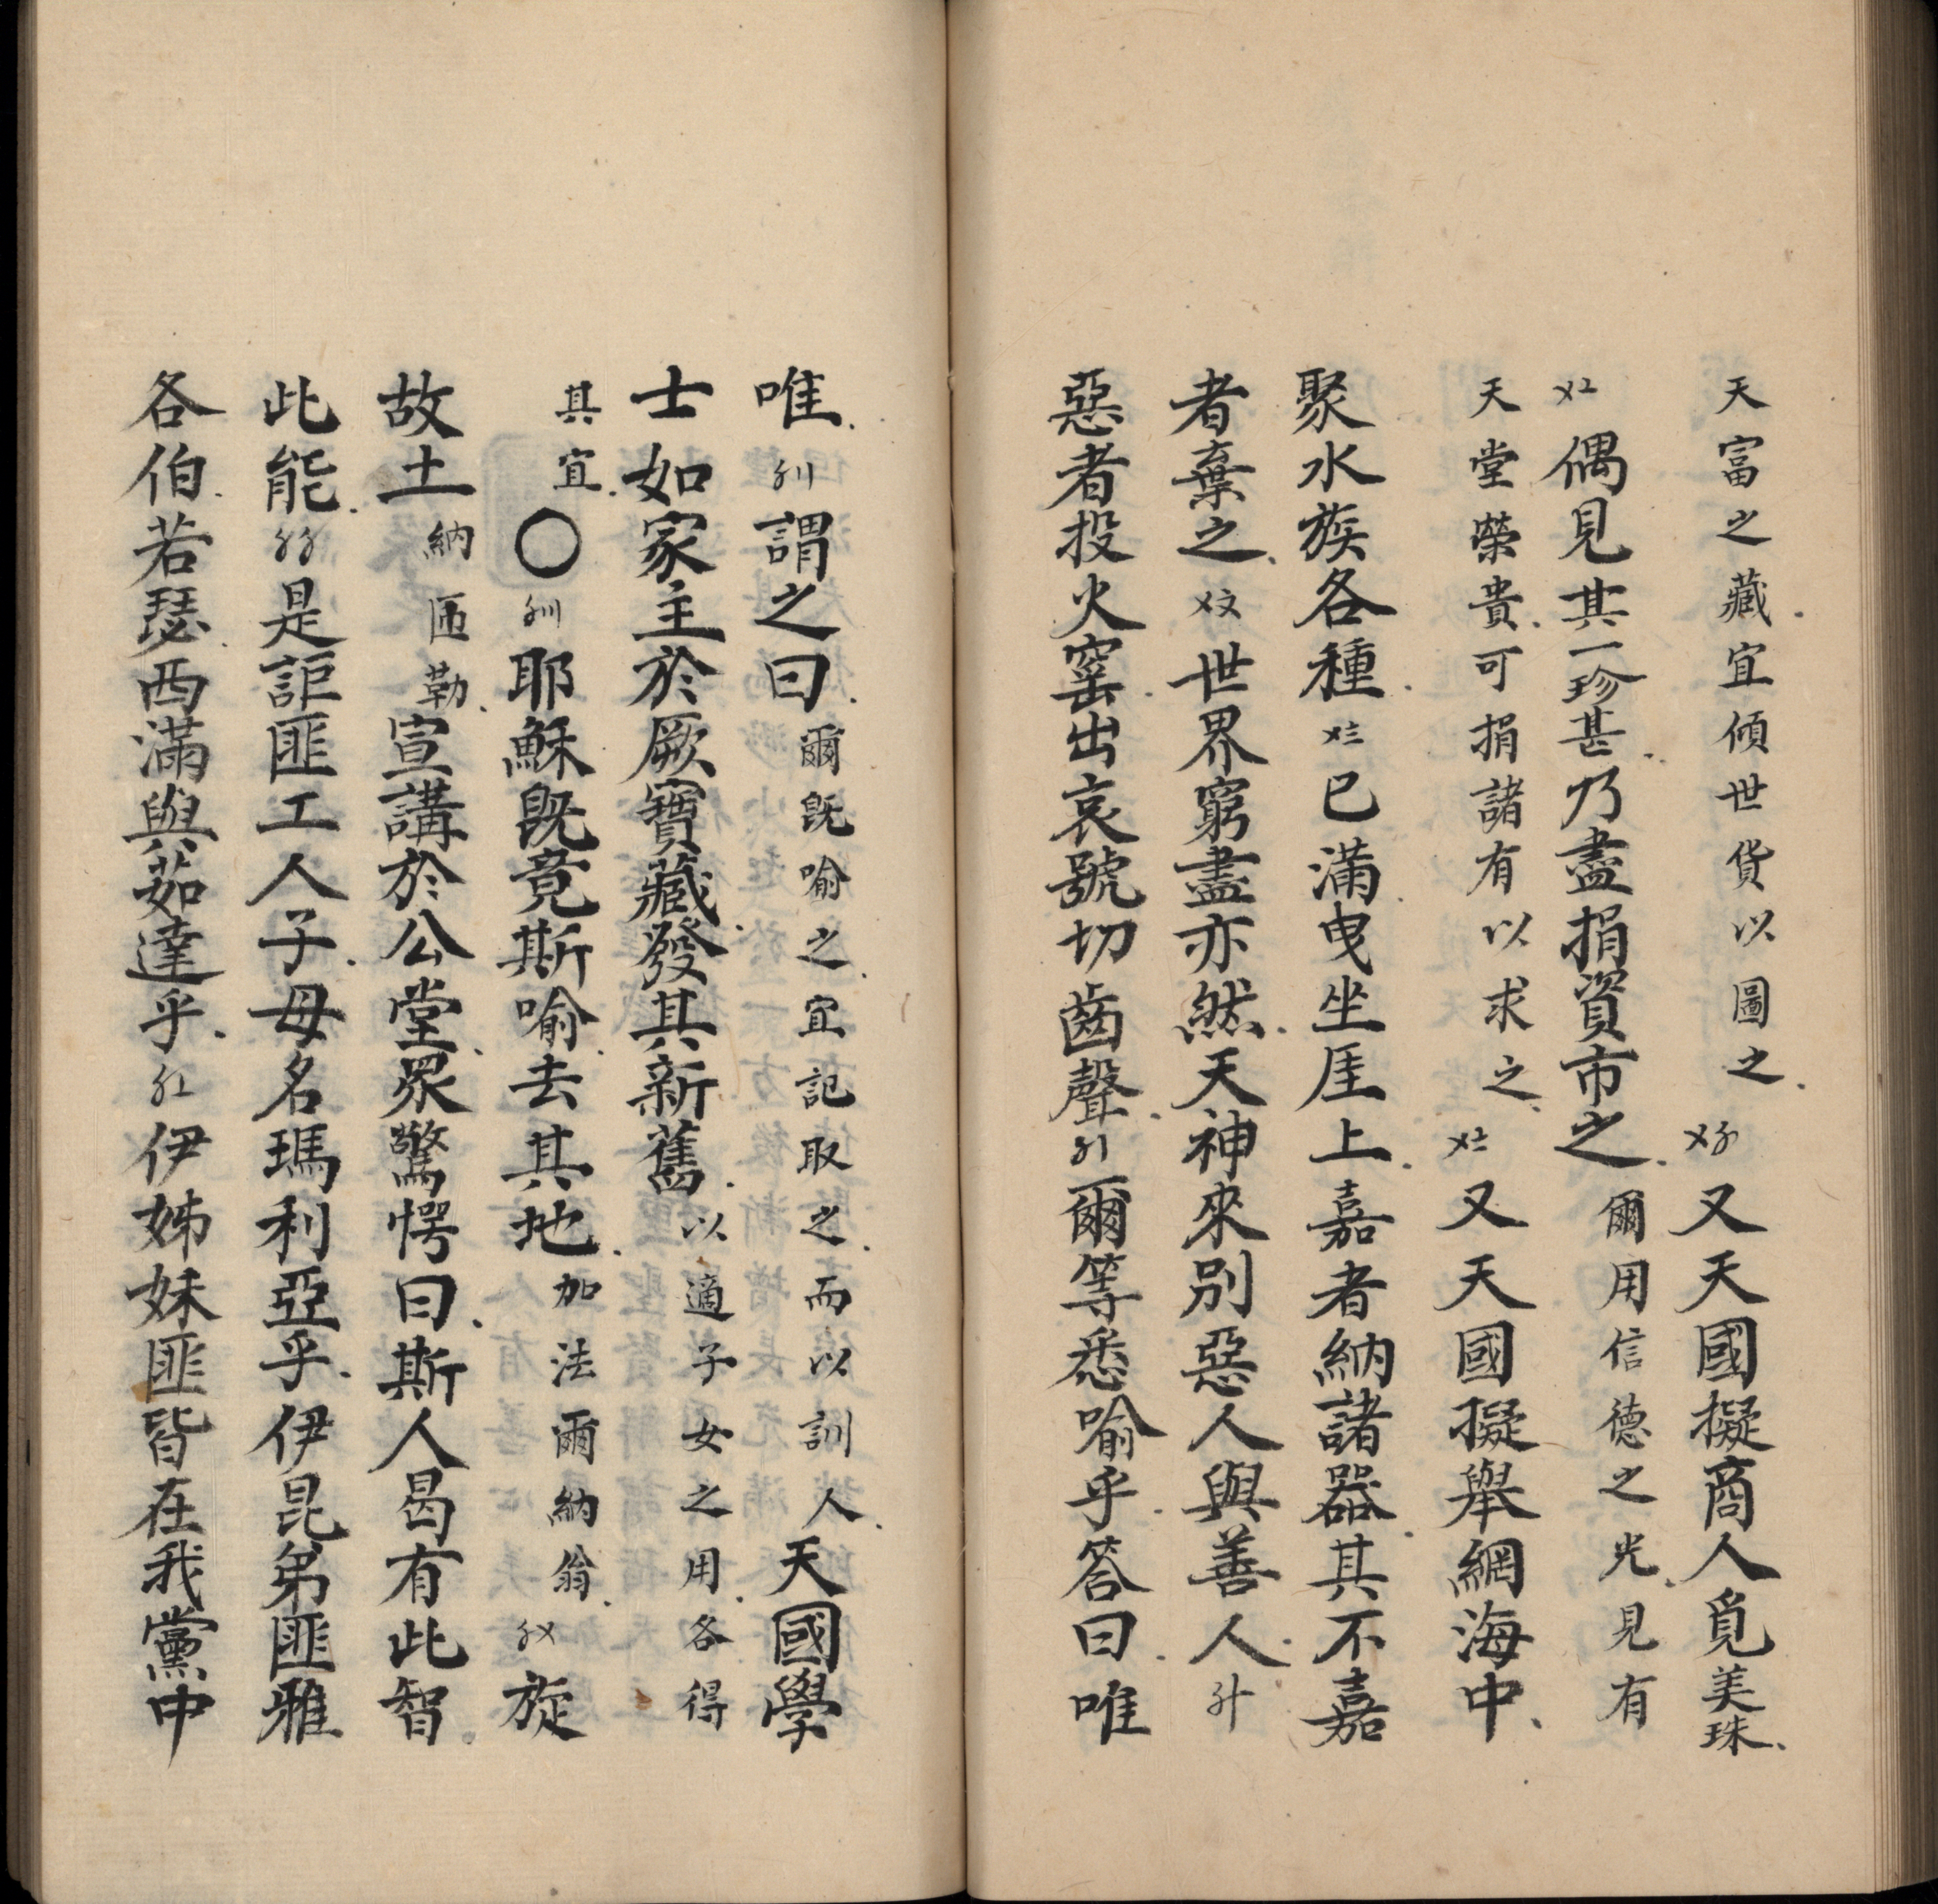 天富之藏宜傾世貨以圖之〤〥又天國擬商人覓美珠
〤〦偶見其一珍甚乃盡捐資市之爾用信德之光見有
天堂榮貴可捐諸有以求之〤〧又天國擬舉網海中
聚水族各種〤〨已滿曳坐厓上嘉者納諸器其不嘉
者棄之〤〩世界窮盡亦然天神來別惡人與善人〥十
惡者投火窰出哀號切齒聲〥〡爾等悉喻乎答曰唯
唯〥〢謂之曰爾既喻之宜記取之而以訓人天國學
士如家主於厥寶藏發其新舊以適子女之用各得
其宜〇〥〣耶穌既竟斯喻去其地加法爾納翁〥〤旋
故土納匝勒宣講於公堂眾驚愕曰斯人曷有此智
此能〥〥是詎匪工人子母名瑪利亞乎伊昆弟匪雅
各伯若瑟西滿與茹達乎〥〦伊姊妹匪皆在我黨中